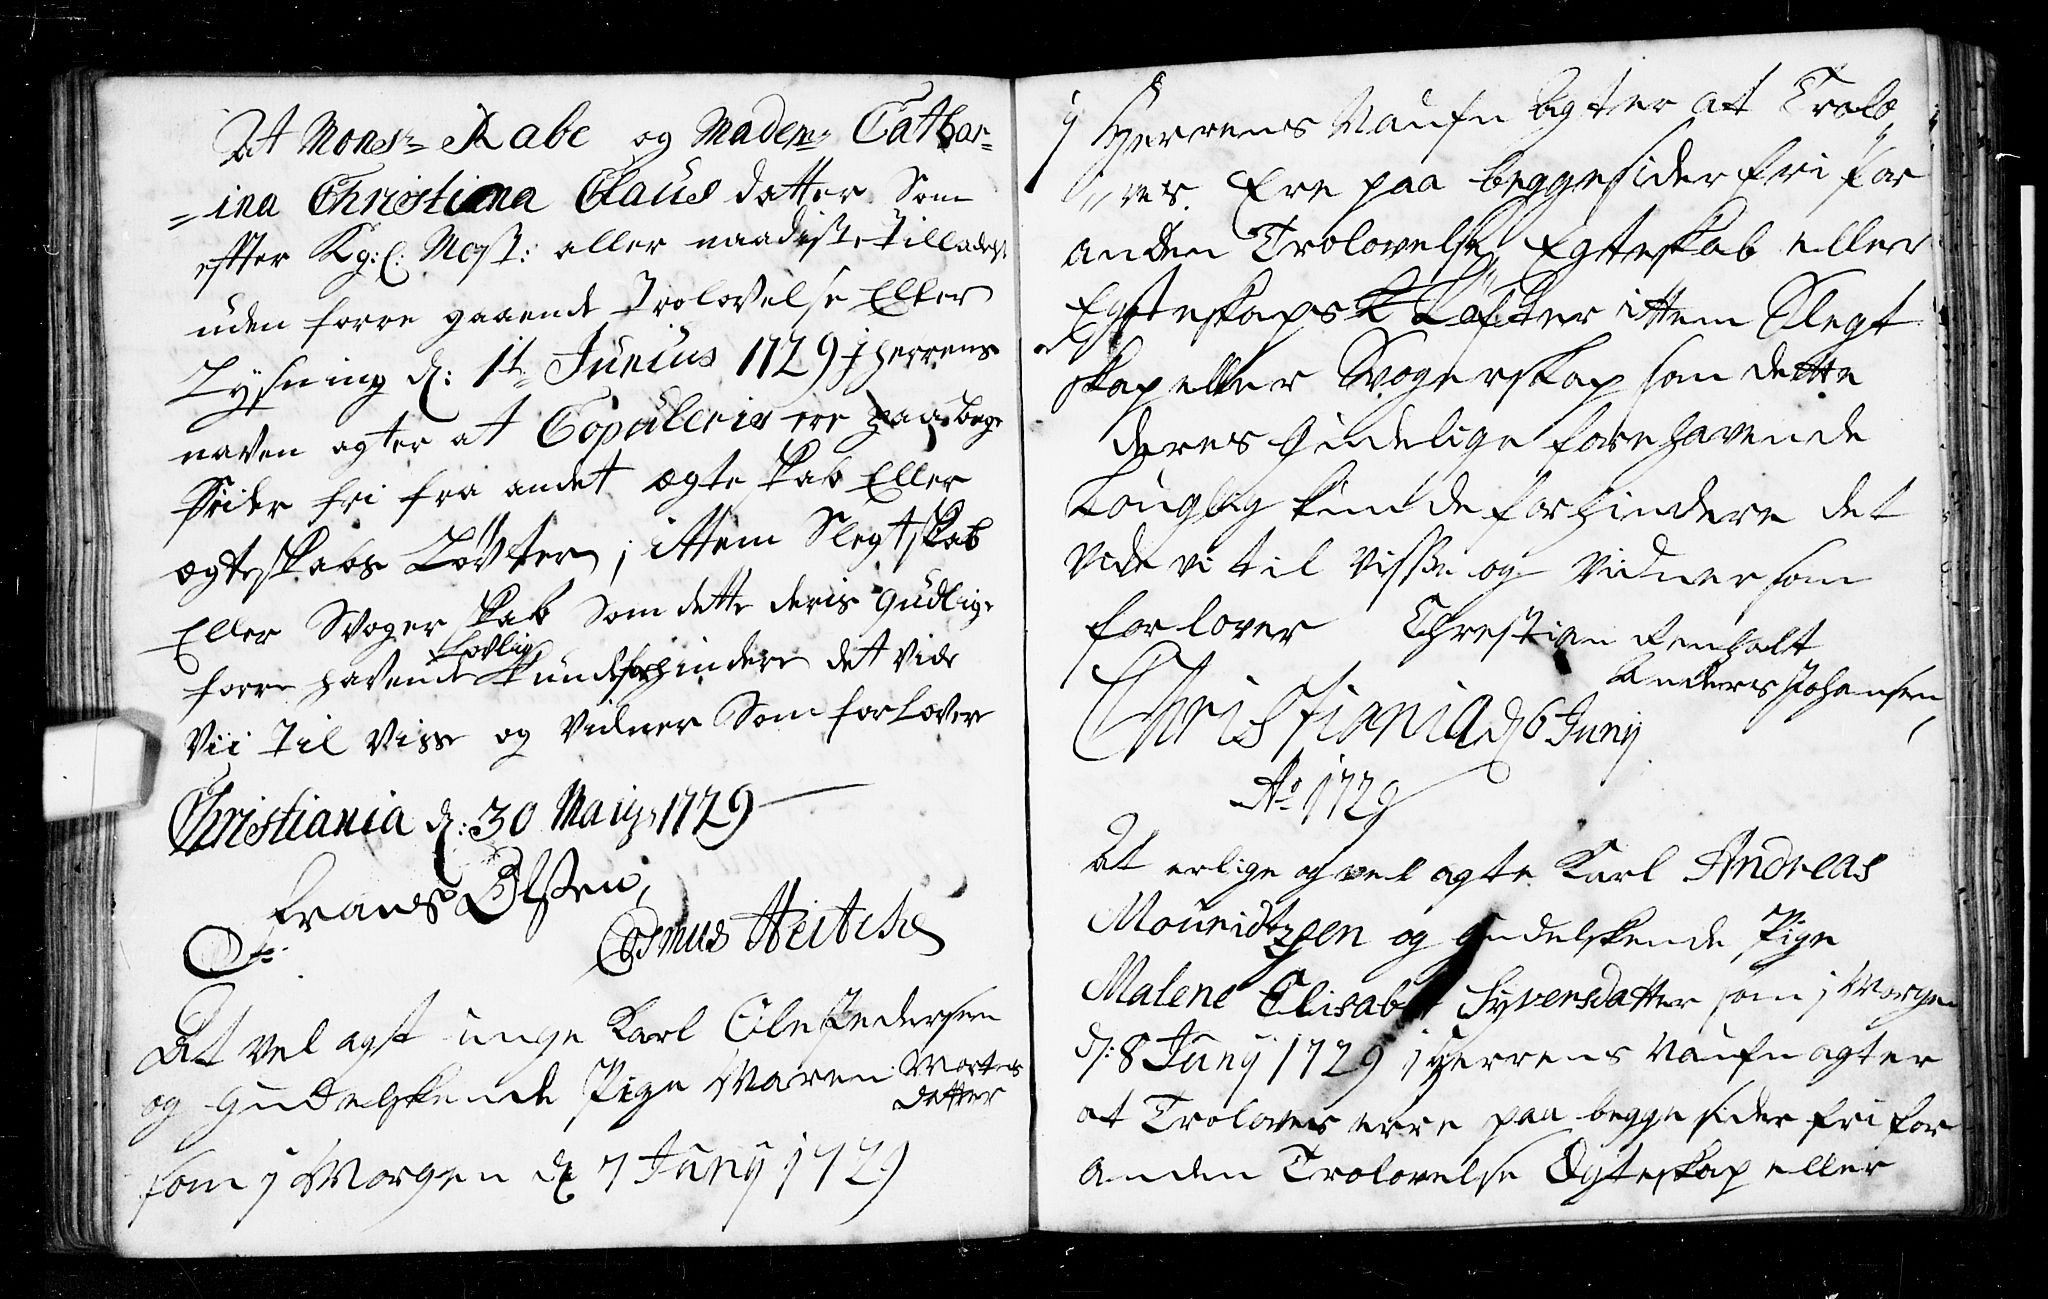 At Monsr= Rabe og Madem= Cathar=
=ina Christiana Claus datter Som
efter Kg:l: Mayst: aller naadigste Tilladelse
uden forre gaaende Trolovelse Eller
Lysning d: 1t= Junius 1729 j Herrens
naven agter at Copuleris ere paa begge
Siider fri fra andet ægteskab Eller
ægteskabs Løvter, ; ittem Slegtskab
Eller Svogerskab Som dette deris Gudlige
forre havende Lovlig kunde forhindere det vide
Vii Til Visse og Vidner Som forlovere
Christiania d: 30 Maij 1729
Frans Olsen,
Cosmus Heitche
At vel agt unge Karl Ole Pedersen
og Gudelskende Pige Maren Mortens
datter
som j Morgen d 7 Junij 1729
j Herrens Naufn Agter at Trolo
"ves. Ere paa begge sider fri for
anden Trolovelse, Egteskab eller
Egteskaps Løfter ittem Slegt
skap eller Svogerskap som dette
deres Gudelige forehavende
Louglig kunde forhindere det
Vide vi til Visse og Vidner som
forlover Christian Renholt
Anders Johansen
Christiania d 6 Junij
Ao 1729
At erlige og vel agte Karl Andreas
Mouridtzsen og Gudelskende Pige
Malene Elisabet Syversdatter som j Morgen
d: 8 Junij 1729 j Herrens Naufn agter
at Troloves erre paa begge sider fri for
Anden Trolovelse Egteskap eller